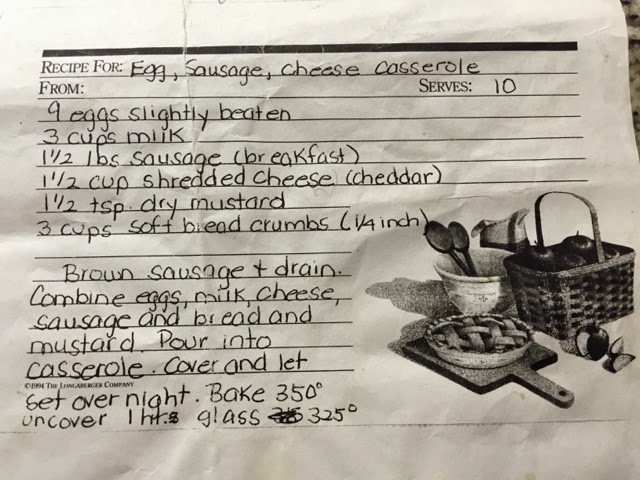 RECIPE FOR: Egg, Sausage, Cheese Casserole
FROM: SERVES: 10
9 eggs slightly beaten
3 cups milk
1 1/2 lbs sausage (breakfast)
1 1/2 cup shredded cheese (cheddar)
1 1/2 tsp. dry mustard
3 cups soft bread crumbs (1/4 inch)
Brown sausage + drain.
Combine eggs, milk, cheese,
sausage and bread and
mustard. Pour into
casserole. Cover and let
©1994 THE LONGABERGER COMPANY
set over night. Bake 350°
uncover 1 hr. glass 325°